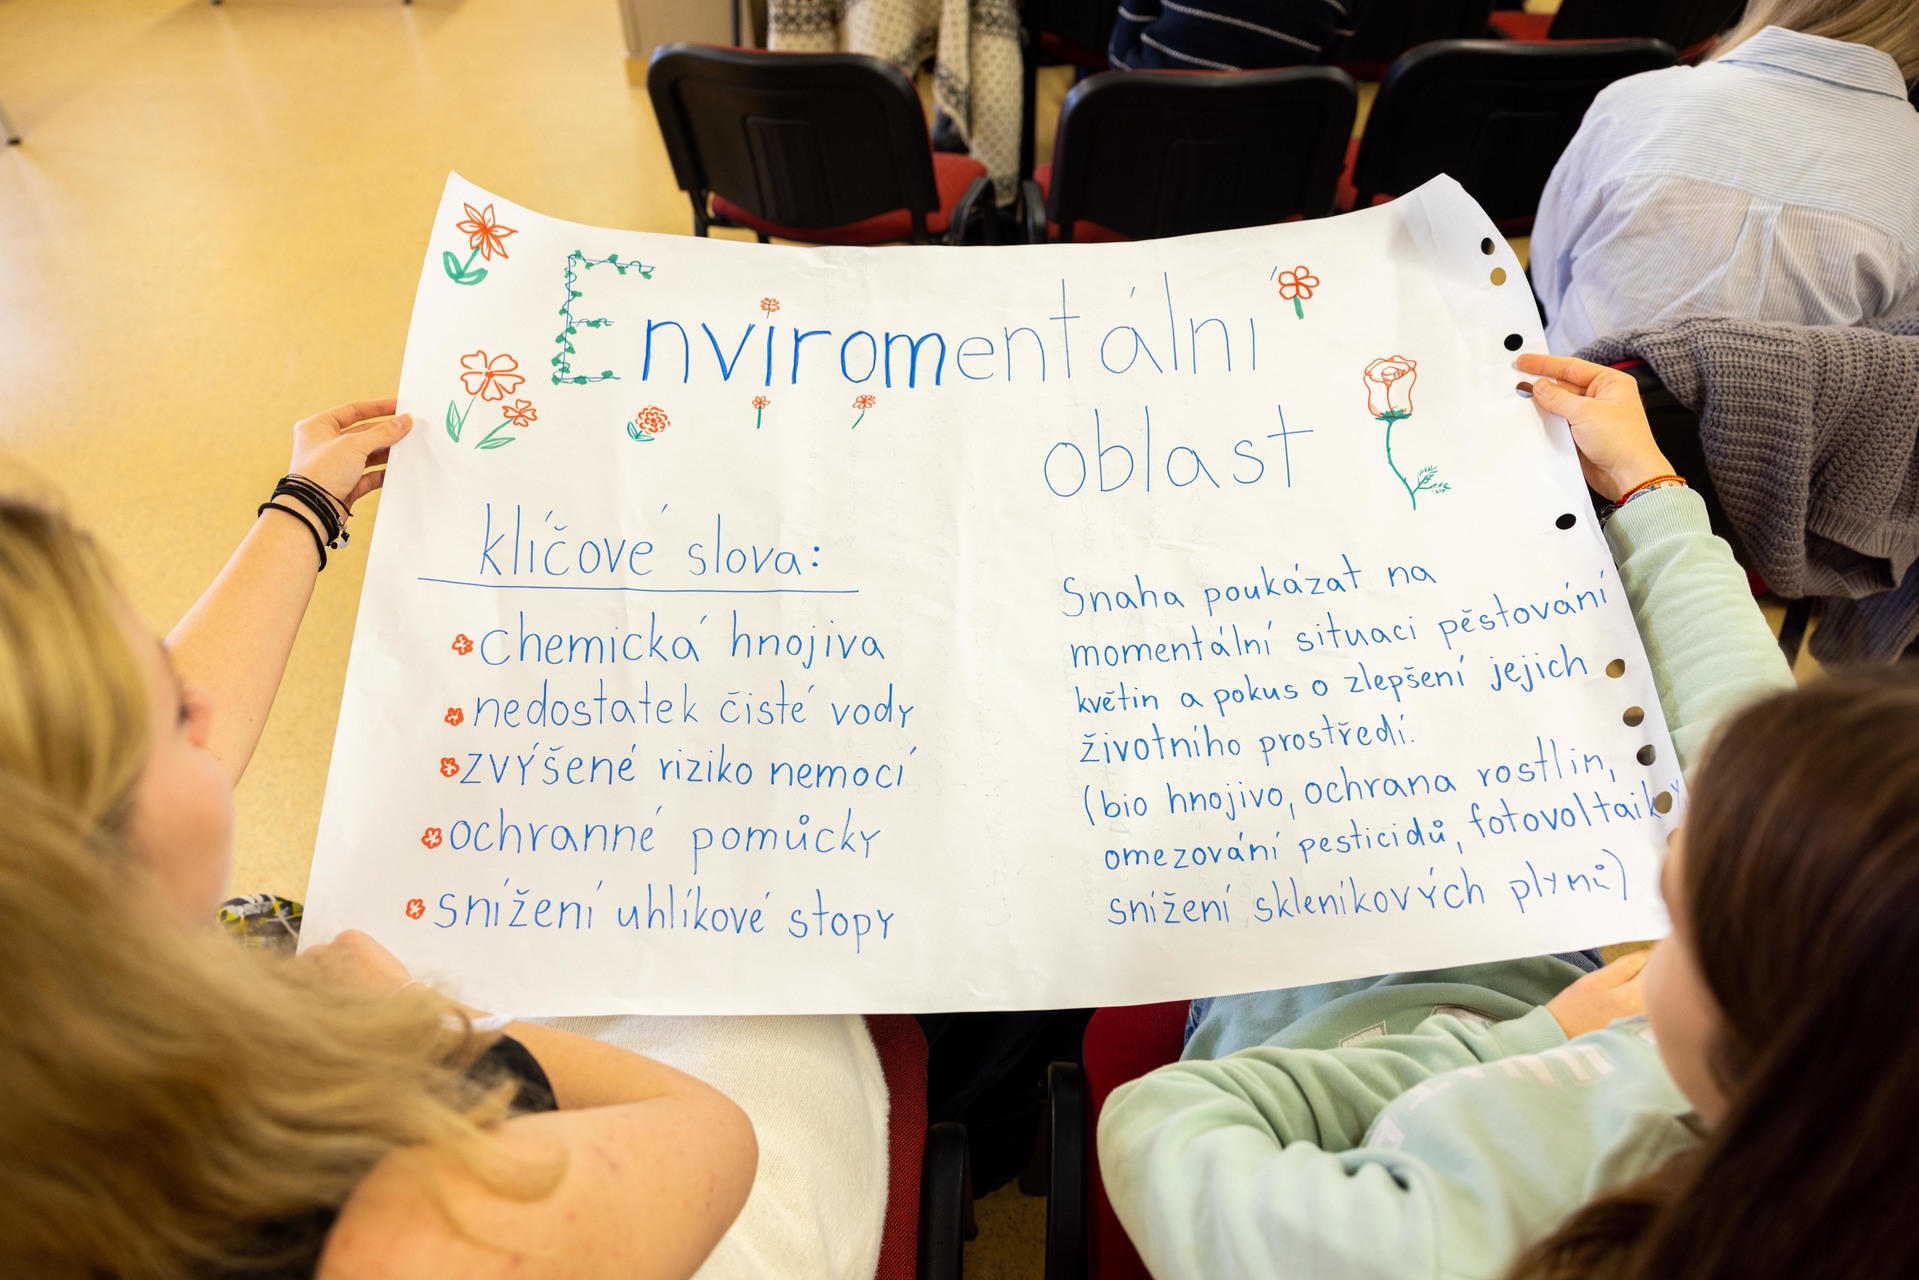 Enviromentální
oblast
klíčové slova:
chemická hnojiva
nedostatek čisté vody
zvýšené riziko nemocí
ochranné pomůcky
snížení uhlíkové stopy
Snaha poukázat na
momentální situaci pěstování
květin a pokus o zlepšení jejich
životního prostředí.
(bio hnojivo, ochrana rostlin,
omezování pesticidů, fotovoltaiky
snížení skleníkových plynů)